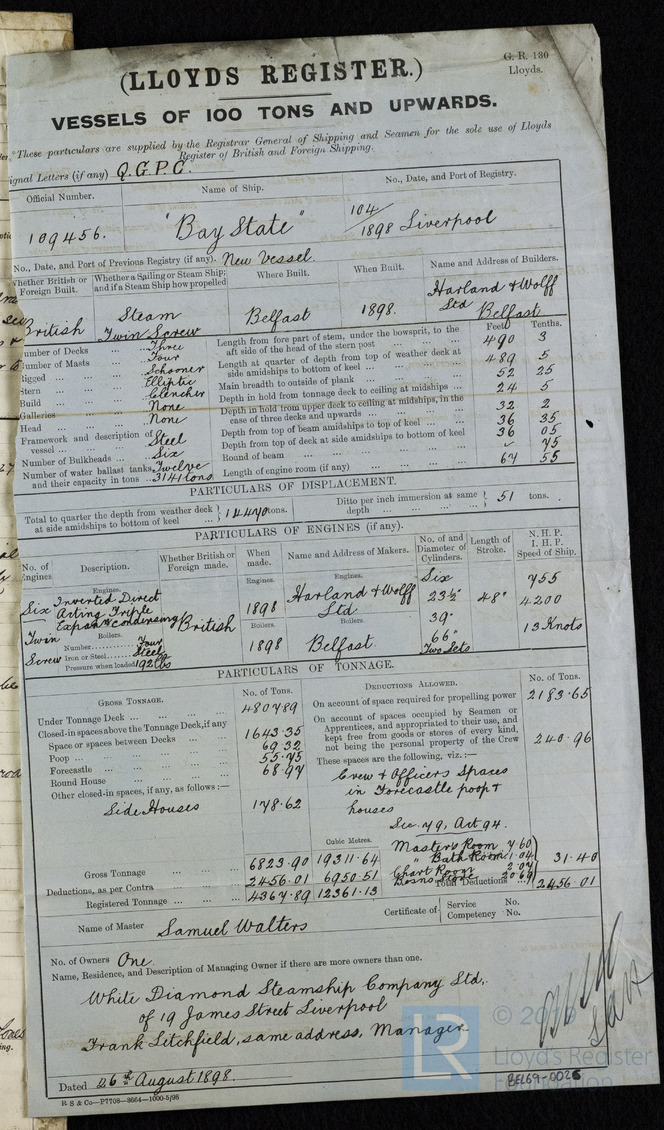 G. R. 130
Lloyds.
(LLOYDS REGISTER.)
VESSELS OF 100 TONS AND UPWARDS.
These particulars are supplied by the Registrar General of Shipping and Seamen for the sole use of Lloyds
Register of British and Foreign Shipping.
ignal Letters (if any) Q.G.P.C.
Official Number. Name of Ship. No., Date, and Port of Registry.
109456. "Bay State" 104/1898 Liverpool
No., Date, and Port of Previous Registry (if any). New Vessel.
Whether British or Foreign Built. Whether a Sailing or Steam Ship; and if a Steam Ship how propelled Where Built. When Built. Name and Address of Builders.
British Steam Twin Screw Belfast 1898. Harland & Wolff Ltd Belfast
Feet Tenths.
Number of Decks ... Three
Number of Masts ... Four
Rigged ... Schooner
Stern ... Elliptic
Build ... Clencher
Galleries ... None
Head ... None
Framework and description of vessel ... Steel
Number of Bulkheads ... Six
Number of water ballast tanks, and their capacity in tons Twelve 3141 tons
Length from fore part of stem, under the bowsprit, to the aft side of the head of the stern post 490 3
Length at quarter of depth from top of weather deck at side amidships to bottom of keel 489 5
Main breadth to outside of plank 52 25
Depth in hold from tonnage deck to ceiling at midships 24 5
Depth in hold from upper deck to ceiling at midships, in the case of three decks and upwards 32 2
Depth from top of beam amidships to top of keel 36 35
Depth from top of deck at side amidships to bottom of keel 36 05
Round of beam 75
Length of engine room (if any) 67 55
PARTICULARS OF DISPLACEMENT.
Total to quarter the depth from weather deck at side amidships to bottom of keel 14470 tons. Ditto per inch immersion at same depth 51 tons.
PARTICULARS OF ENGINES (if any).
No. of Engines. Description. Whether British or Foreign made. When made. Name and Address of Makers. No. of and Diameter of Cylinders. Length of Stroke. N. H. P. I. H. P. Speed of Ship.
Engines. Engines. Engines.
Six Inverted Direct Acting Triple Expan & Condensing British 1898 Harland & Wolff Ltd Six 23½" 48" 755
39" 4200
Boilers. Boilers. Boilers.
Twin Screw Number Four 1898 Belfast 66" 13 Knots
Iron or Steel Steel Two Sets
Pressure when loaded 192 lbs
PARTICULARS OF TONNAGE.
GROSS TONNAGE. No. of Tons.
Under Tonnage Deck 4807.89
Closed-in spaces above the Tonnage Deck, if any
Space or spaces between Decks 1643.35
Poop 69.32
Forecastle 55.75
Round House 68.97
Other closed-in spaces, if any, as follows:—
Side Houses 178.62
Cubic Metres.
Gross Tonnage 6823.90 19311.64
Deductions, as per Contra 2456.01 6950.51
Registered Tonnage 4367.89 12361.13
DEDUCTIONS ALLOWED. No. of Tons.
On account of space required for propelling power 2183.65
On account of spaces occupied by Seamen or Apprentices, and appropriated to their use, and kept free from goods or stores of every kind, not being the personal property of the Crew 240.96
These spaces are the following, viz.:—
Crew & Officers Spaces
in Forecastle poop &
houses
Sec. 79, Act 94.
Master's Room 7.60
" Bath Room 1.04
Chart Room 2.07
Bosns Store 20.69
31.40
Total Deductions 2456.01
Name of Master Samuel Walters Certificate of Service No. Competency No.
No. of Owners One.
Name, Residence, and Description of Managing Owner if there are more owners than one.
White Diamond Steamship Company Ltd,
of 19 James Street Liverpool
Frank Litchfield, same address, Manager
Dated 26th August 1898.
R S & Co—P7708—3664—1000-5/98
LR
Lloyd's Register
Foundation
BEL69-0026